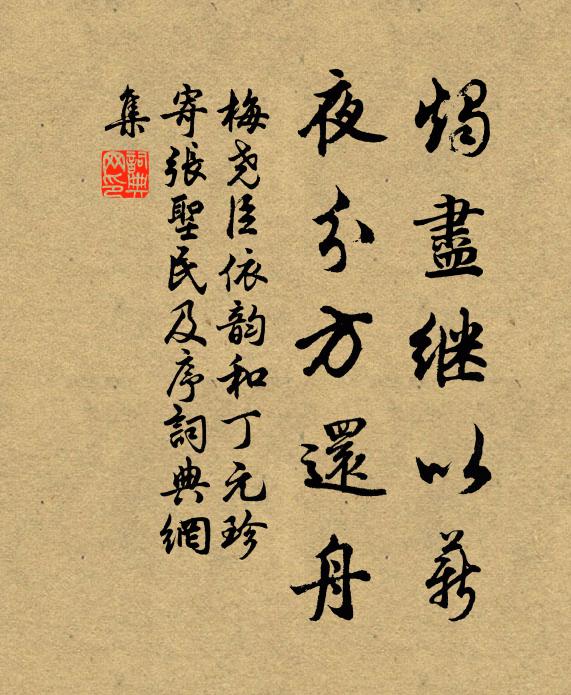 燭盡继以薪
夜分方還舟
梅尧臣依韵和丁元珍
寄張聖民及序詞典網
集
詞典
网印